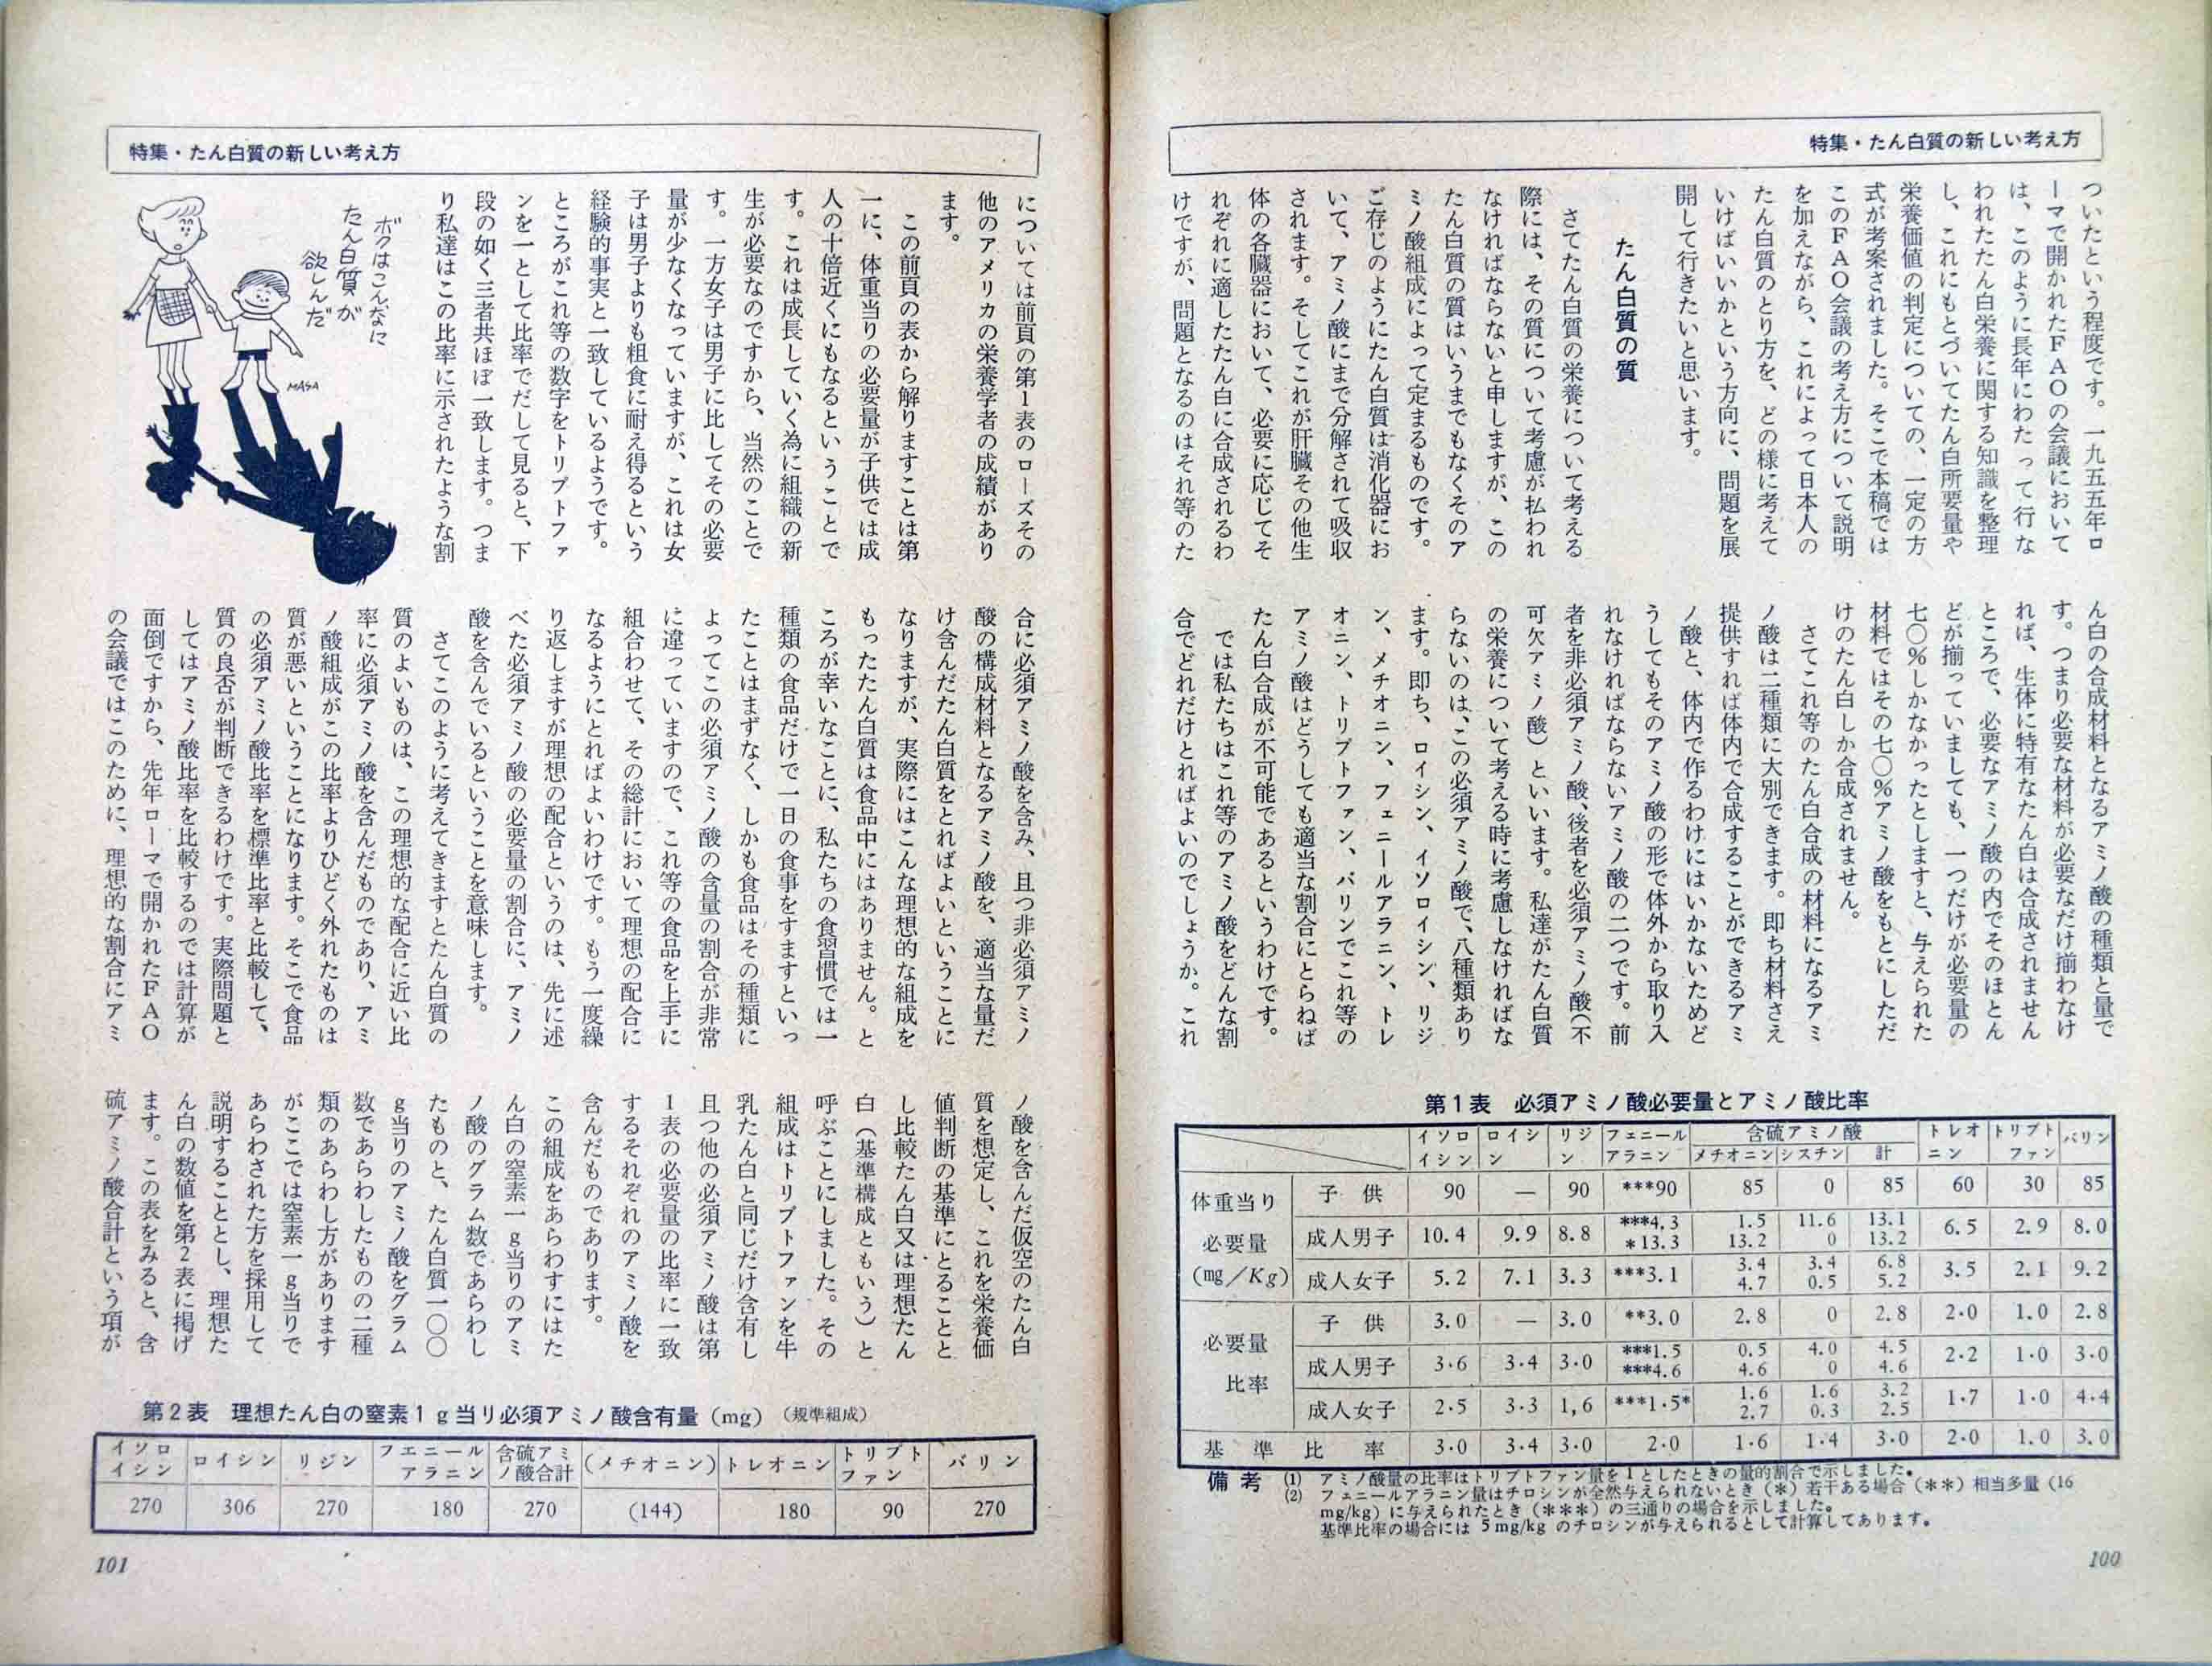 特集・たん白質の新しい考え方
ついたという程度です。一九五五年ロ
ーマで開かれたFAOの会議において
は、このように長年にわたって行な
われたたん白栄養に関する知識を整理
し、これにもとづいてたん白所要量や
栄養価値の判定についての、一定の方
式が考案されました。そこで本稿では
このFAO会議の考え方について説明
を加えながら、これによって日本人の
たん白質のとり方を、どの様に考えて
いけばいいかという方向に、問題を展
開して行きたいと思います。
たん白質の質
さてたん白質の栄養について考える
際には、その質について考慮が払われ
なければならないと申しますが、この
たん白質の質はいうまでもなくそのア
ミノ酸組成によって定まるものです。
ご存じのようにたん白質は消化器にお
いて、アミノ酸にまで分解されて吸収
されます。そしてこれが肝臓その他生
体の各臓器において、必要に応じてそ
れぞれに適したたん白に合成されるわ
けですが、問題となるのはそれ等のた
ん白の合成材料となるアミノ酸の種類と量で
す。つまり必要な材料が必要なだけ揃わなけ
れば、生体に特有なたん白は合成されません
ところで、必要なアミノ酸の内でそのほとん
どが揃っていましても、一つだけが必要量の
七〇%しかなかったとしますと、与えられた
材料ではその七〇%アミノ酸をもとにしただ
けのたん白しか合成されません。
さてこれ等のたん白合成の材料になるアミ
ノ酸は二種類に大別できます。即ち材料さえ
提供すれば体内で合成することができるアミ
ノ酸と、体内で作るわけにはいかないためど
うしてもそのアミノ酸の形で体外から取り入
れなければならないアミノ酸の二つです。前
者を非必須アミノ酸、後者を必須アミノ酸(不
可欠アミノ酸)といいます。私達がたん白質
の栄養について考える時に考慮しなければな
らないのは、この必須アミノ酸で、八種類あり
ます。即ち、ロイシン、イソロイシン、リジ
ン、メチオニン、フェニールアラニン、トレ
オニン、トリプトファン、バリンでこれ等の
アミノ酸はどうしても適当な割合にとらねば
たん白合成が不可能であるというわけです。
では私たちはこれ等のアミノ酸をどんな割
合でどれだけとればよいのでしょうか。これ
第1表 必須アミノ酸必要量とアミノ酸比率
イソロイシン ロイシン リジン フェニールアラニン 含硫アミノ酸 メチオニン シスチン 計 トレオニン トリプトファン バリン
体重当り必要量(mg/Kg)
子供 90 — 90 ***90 85 0 85 60 30 85
成人男子 10.4 9.9 8.8 ***4.3 1.5 11.6 13.1 6.5 2.9 8.0
*13.3 13.2 0 13.2
成人女子 5.2 7.1 3.3 ***3.1 3.4 3.4 6.8 3.5 2.1 9.2
4.7 0.5 5.2
必要量比率
子供 3.0 — 3.0 **3.0 2.8 0 2.8 2·0 1.0 2.8
成人男子 3·6 3·4 3·0 ***1.5 0.5 4.0 4.5 2·2 1·0 3·0
***4.6 4.6 0 4.6
成人女子 2·5 3·3 1,6 ***1·5* 1.6 1.6 3.2 1·7 1·0 4·4
2.7 0.3 2.5
基準比率 3·0 3·4 3·0 2·0 1·6 1·4 3·0 2·0 1.0 3.0
備考 (1) アミノ酸量の比率はトリプトファン量を1としたときの量的割合で示しました。
(2) フェニールアラニン量はチロシンが全然与えられないとき(*)若干ある場合(**)相当多量(16
mg/kg)に与えられたとき(***)の三通りの場合を示しました。
基準比率の場合には 5mg/kg のチロシンが与えられるとして計算してあります。
100
特集・たん白質の新しい考え方
については前頁の第1表のローズその
他のアメリカの栄養学者の成績があり
ます。
この前頁の表から解りますことは第
一に、体重当りの必要量が子供では成
人の十倍近くにもなるということで
す。これは成長していく為に組織の新
生が必要なのですから、当然のことで
す。一方女子は男子に比してその必要
量が少なくなっていますが、これは女
子は男子よりも粗食に耐え得るという
経験的事実と一致しているようです。
ところがこれ等の数字をトリプトファ
ンを一として比率でだして見ると、下
段の如く三者共ほぼ一致します。つま
り私達はこの比率に示されたような割
ボクはこんなに
たん白質が
欲しんだ
MASA
合に必須アミノ酸を含み、且つ非必須アミノ
酸の構成材料となるアミノ酸を、適当な量だ
け含んだたん白質をとればよいということに
なりますが、実際にはこんな理想的な組成を
もったたん白質は食品中にはありません。と
ころが幸いなことに、私たちの食習慣では一
種類の食品だけで一日の食事をすますといっ
たことはまずなく、しかも食品はその種類に
よってこの必須アミノ酸の含量の割合が非常
に違っていますので、これ等の食品を上手に
組合わせて、その総計において理想の配合に
なるようにとればよいわけです。もう一度繰
り返しますが理想の配合というのは、先に述
べた必須アミノ酸の必要量の割合に、アミノ
酸を含んでいるということを意味します。
さてこのように考えてきますとたん白質の
質のよいものは、この理想的な配合に近い比
率に必須アミノ酸を含んだものであり、アミ
ノ酸組成がこの比率よりひどく外れたものは
質が悪いということになります。そこで食品
の必須アミノ酸比率を標準比率と比較して、
質の良否が判断できるわけです。実際問題と
してはアミノ酸比率を比較するのでは計算が
面倒ですから、先年ローマで開かれたFAO
の会議ではこのために、理想的な割合にアミ
ノ酸を含んだ仮空のたん白
質を想定し、これを栄養価
値判断の基準にとることと
し比較たん白又は理想たん
白(基準構成ともいう)と
呼ぶことにしました。その
組成はトリプトファンを牛
乳たん白と同じだけ含有し
且つ他の必須アミノ酸は第
1表の必要量の比率に一致
するそれぞれのアミノ酸を
含んだものであります。
この組成をあらわすにはた
ん白の窒素一g当りのアミ
ノ酸のグラム数であらわし
たものと、たん白質一〇〇
g当りのアミノ酸をグラム
数であらわしたものの二種
類のあらわし方があります
がここでは窒素一g当りで
あらわされた方を採用して
説明することとし、理想た
ん白の数値を第2表に掲げ
ます。この表をみると、含
硫アミノ酸合計という項が
第2表 理想たん白の窒素1g当り必須アミノ酸含有量(mg)(規準組成)
イソロイシン ロイシン リジン フエニールアラニン 含硫アミノ酸合計 (メチオニン) トレオニン トリプトファン バリン
270 306 270 180 270 (144) 180 90 270
101